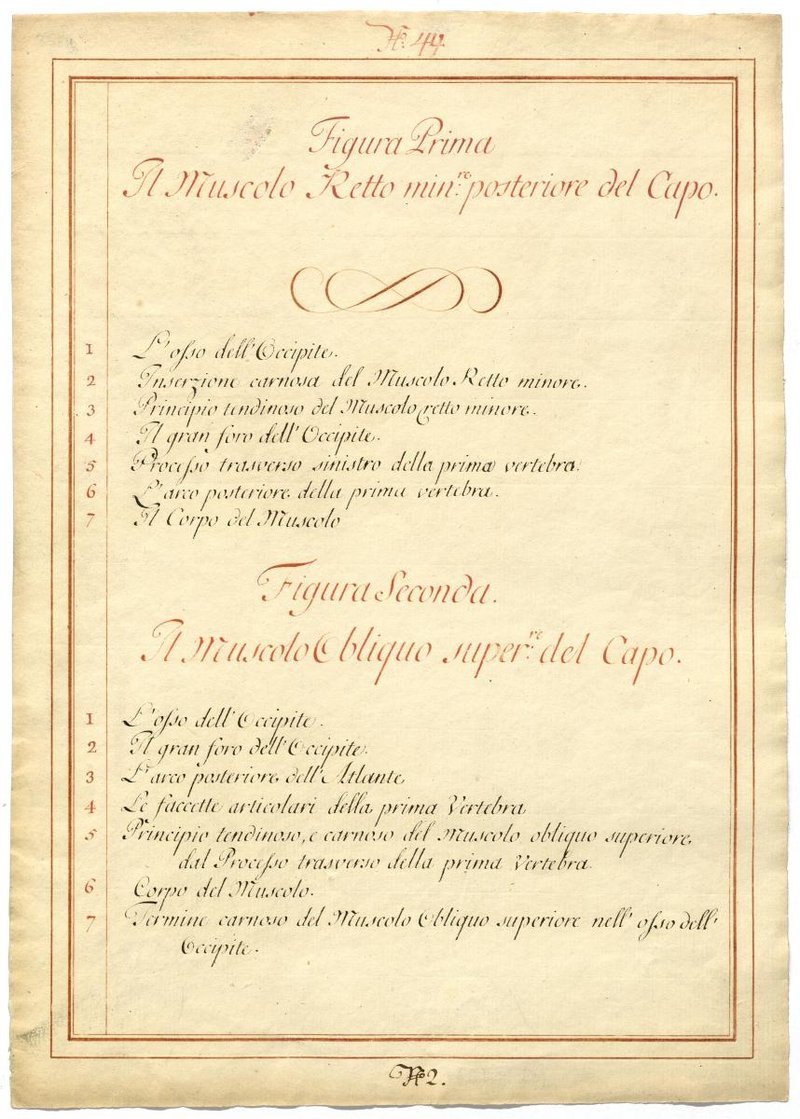 N.º 44.
Figura Prima
Il Muscolo Retto min.re posteriore del Capo.
1 L'osso dell'Occipite.
2 Inserzione carnosa del Muscolo Retto minore.
3 Principio tendinoso del Muscolo retto minore.
4 Il gran foro dell'Occipite.
5 Processo trasverso sinistro della prima vertebra.
6 L'arco posteriore della prima vertebra.
7 Il Corpo del Muscolo
Figura Seconda.
Il Muscolo Obliquo super.re del Capo.
1 L'osso dell'Occipite.
2 Il gran foro dell'Occipite.
3 L'arco posteriore dell'Atlante
4 Le faccette articolari della prima Vertebra
5 Principio tendinoso, e carnoso del Muscolo obliquo superiore,
dal Processo trasverso della prima Vertebra.
6 Corpo del Muscolo.
7 Termine carnoso del Muscolo Obliquo superiore nell'osso dell'
Occipite.
N.º 2.